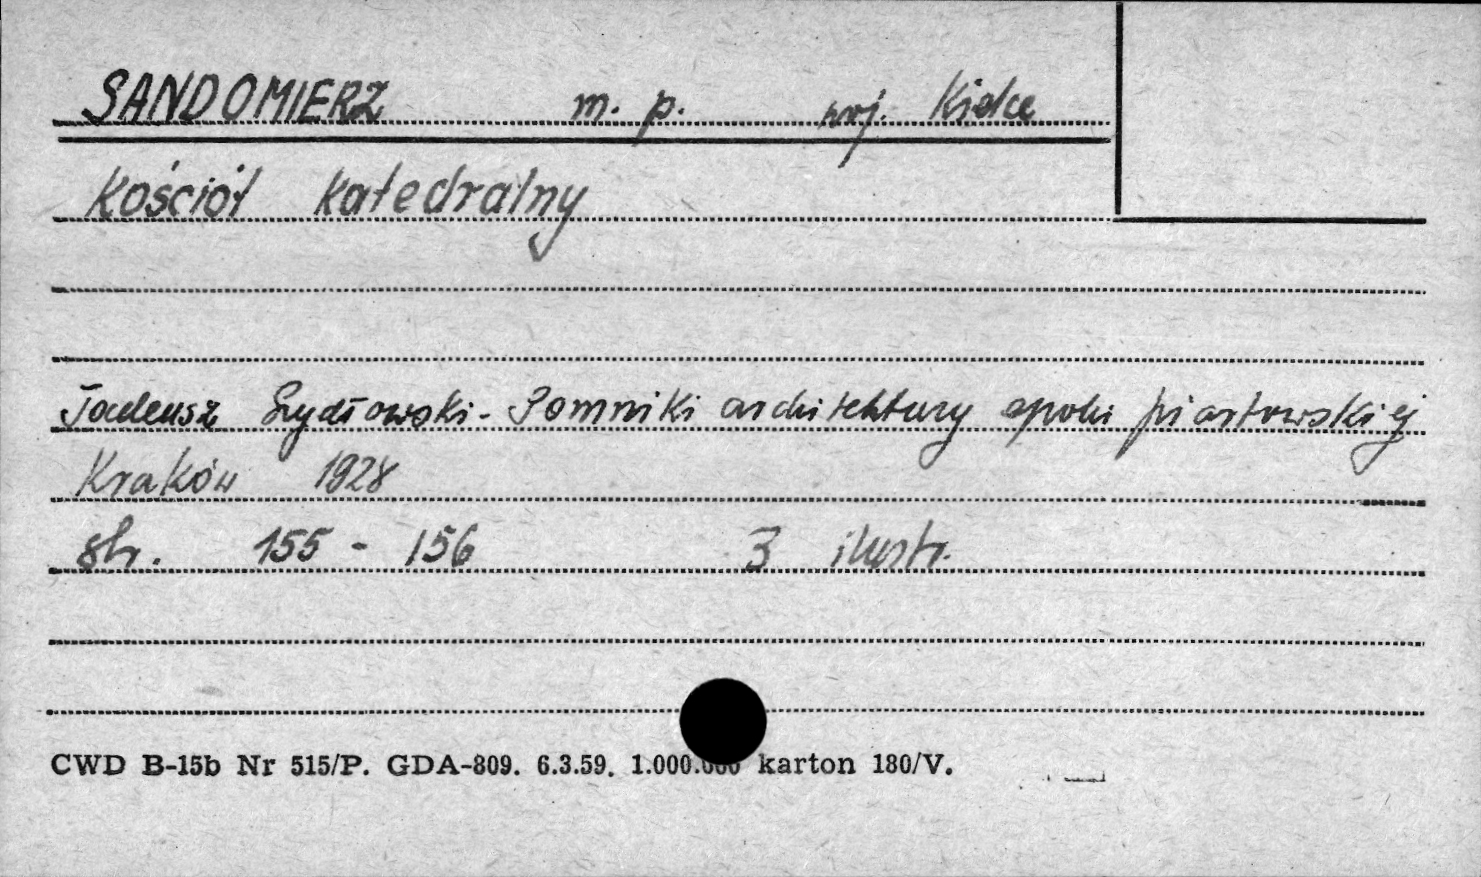 SANDOMIERZ m. p. woj. Kielce
Kościół katedralny
Tadeusz Szydłowski - Pomniki architektury epoki piastowskiej
Kraków 1928
str. 155 - 156 3 ilustr.
CWD B-15b Nr 515/P. GDA-809. 6.3.59. 1.000.000 karton 180/V.